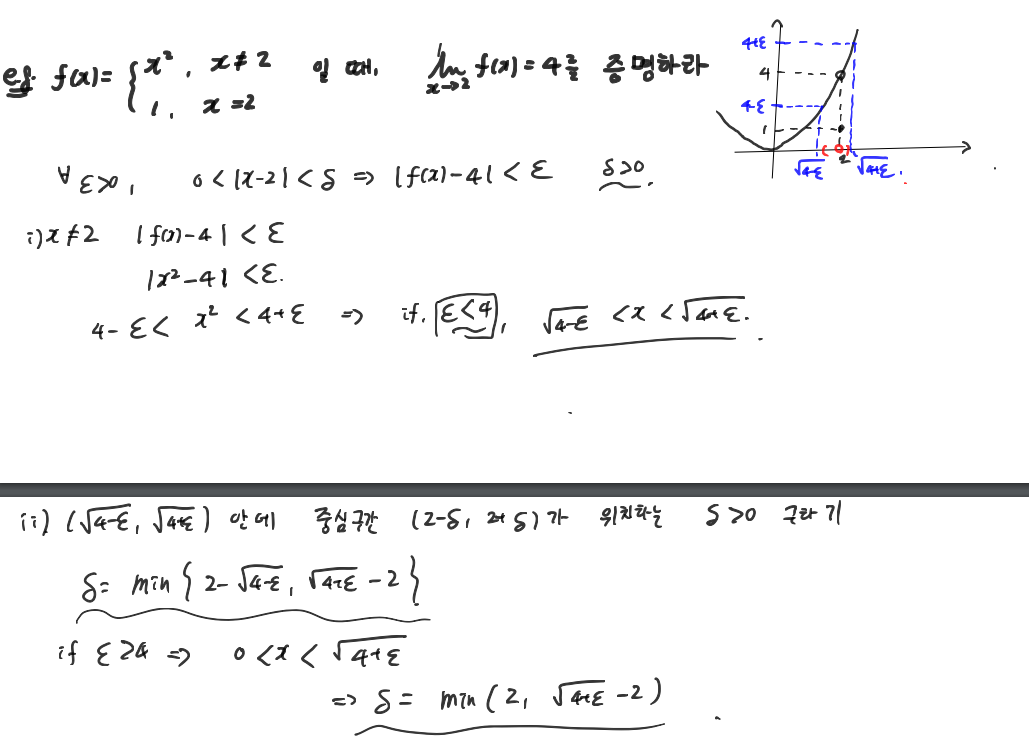 eg. f(x)= { x², x≠2 일 때, lim f(x)=4를 증명하라
1, x=2 x→2
4+ε
4
4-ε
1
√4-ε 2 √4+ε.
∀ε>0, 0<|x-2|<δ ⇒ |f(x)-4|<ε δ>0.
i) x≠2 |f(x)-4|<ε
|x²-4|<ε.
4-ε< x² <4+ε ⇒ if, ε<4, √4-ε <x <√4+ε.
ii) (√4-ε, √4+ε) 안에 중심구간 (2-δ, 2+δ)가 위치하는 δ>0 구하기
δ= min{2-√4-ε, √4+ε -2}
if ε≥4 ⇒ 0<x<√4+ε
⇒ δ= min(2, √4+ε -2)